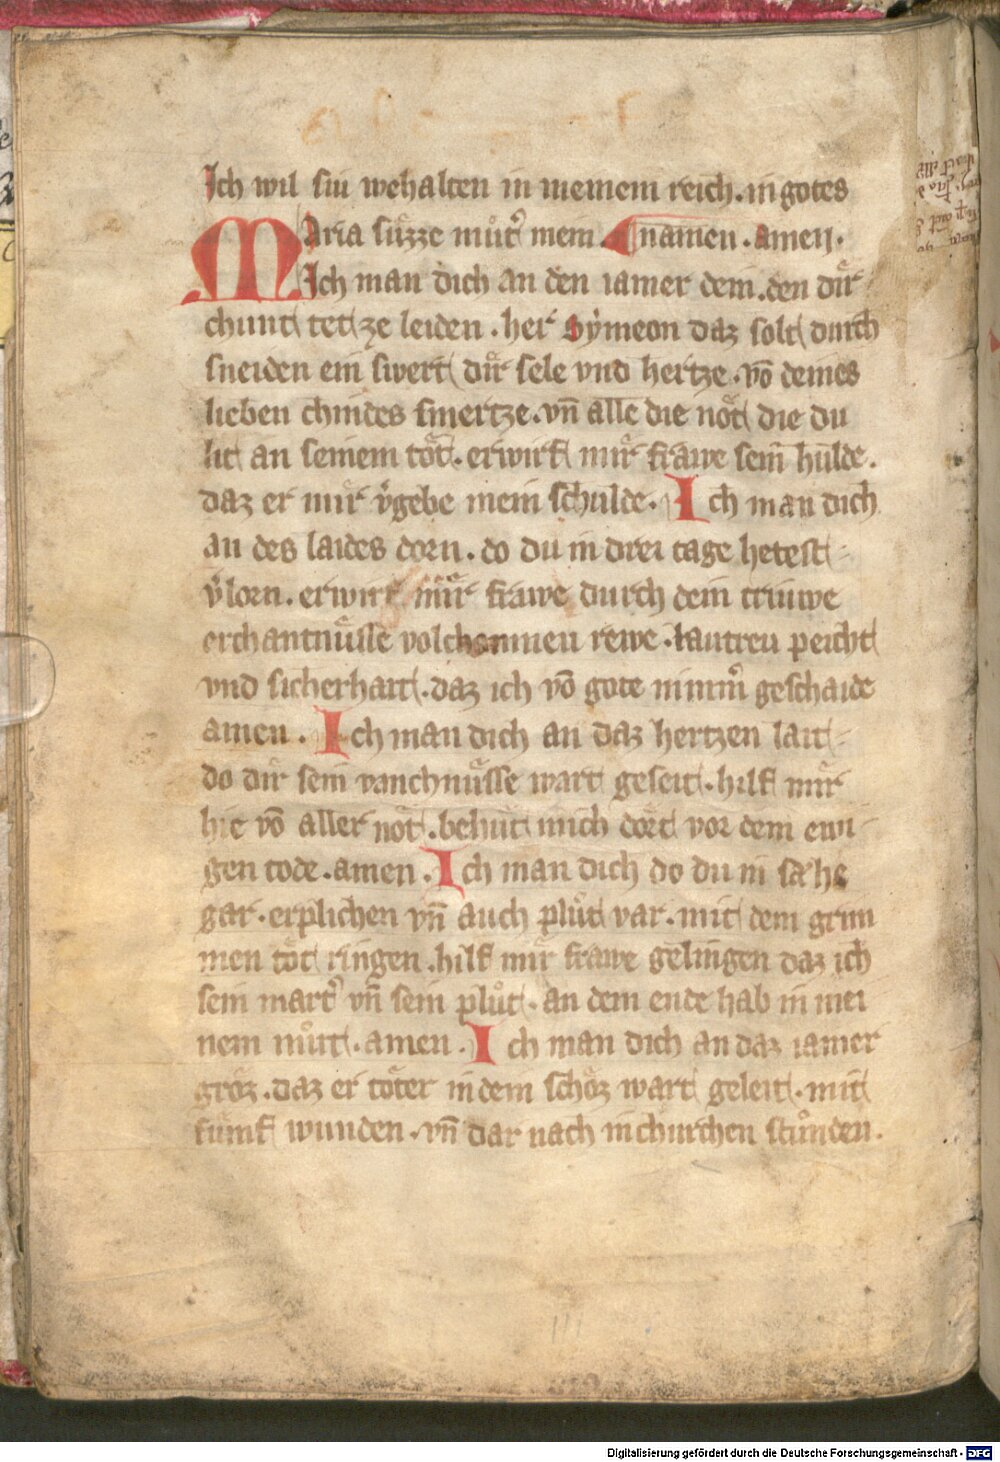 Ich wil siu wehalten in meinem reich. in gotes
Maria sůzze můt̓ mein. namen. amen.
Ich man dich an den iamer dein. den dir
chunt tet ze leiden. her Sẏmeon daz solt durch
sneiden ein swert dir sele vnd hertze. võ deines
lieben chindes smertze. vñ alle die nöt die du
lit an seinem töt. erwirf mir frawe sein hulde.
daz er mir v̓gebe mein schulde. Ich man dich
an des laides dorn. do du in drei tage hetest
v̓lorn. erwirf mir frawe durch dein triuwe
erchantnüsse volchommen rewe. lautreu peicht
vnd sicherhait. daz ich võ gote nimm̓ geschaide
amen. Ich man dich an daz hertzen lait
do dir sein vanchnüsse wart geseit. hilf mir
hie võ aller nöt. behüt mich dört vor dem ewi
gen tode. amen. Ich man dich do du in sæhe
gar. erplichen vñ auch plůt var. mit dem grim
men töt ringen. hilf mir frawe gelingen daz ich
sein mart̓ vñ sein plůt. an dem ende hab in mei
nem můt. amen. Ich man dich an daz iamer
gröz. daz er töter in dein schöz wart geleit. mit
fümf wunden. vñ dar nach in churchen stůnden.
Digitalisierung gefördert durch die Deutsche Forschungsgemeinschaft - DFG